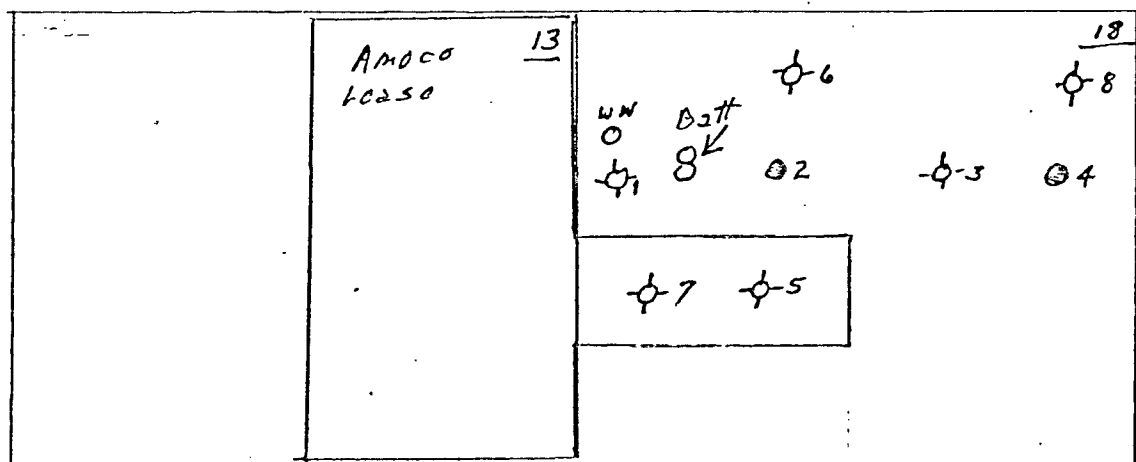 Amoco
Lease
13
18
6
8
WW
Batt
1
2
3
4
7
5